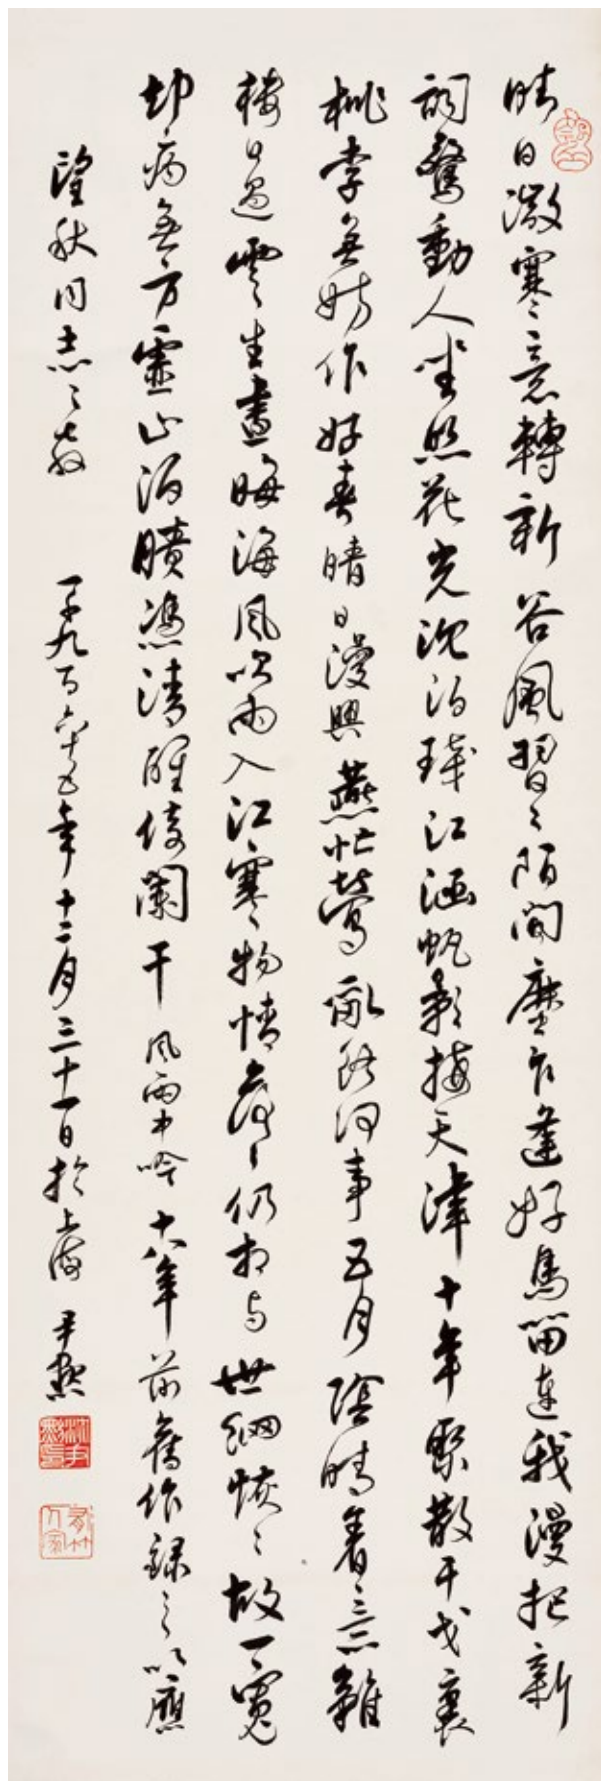 晴日澂寒意轉新谷風習習陌間塵乍逢好鳥留連我漫把新
詞驚動人坐照花光沈泊瑋江涵帆影接天津十年聚散干戈裏
桃李無妨作好春晴日漫興燕忙鶯亂緣何事五月陰晴着意難
樓日過雲生晝晦海風吹雨入江寒物情落落仍相与世網恢恢故一寬
却病無方靈山須憑清醒倚闌干風雨中吟十八年前舊作録之以應
望秋同志之教
一千九百六十五年十二月三十一日於上海尹默
沈尹默印